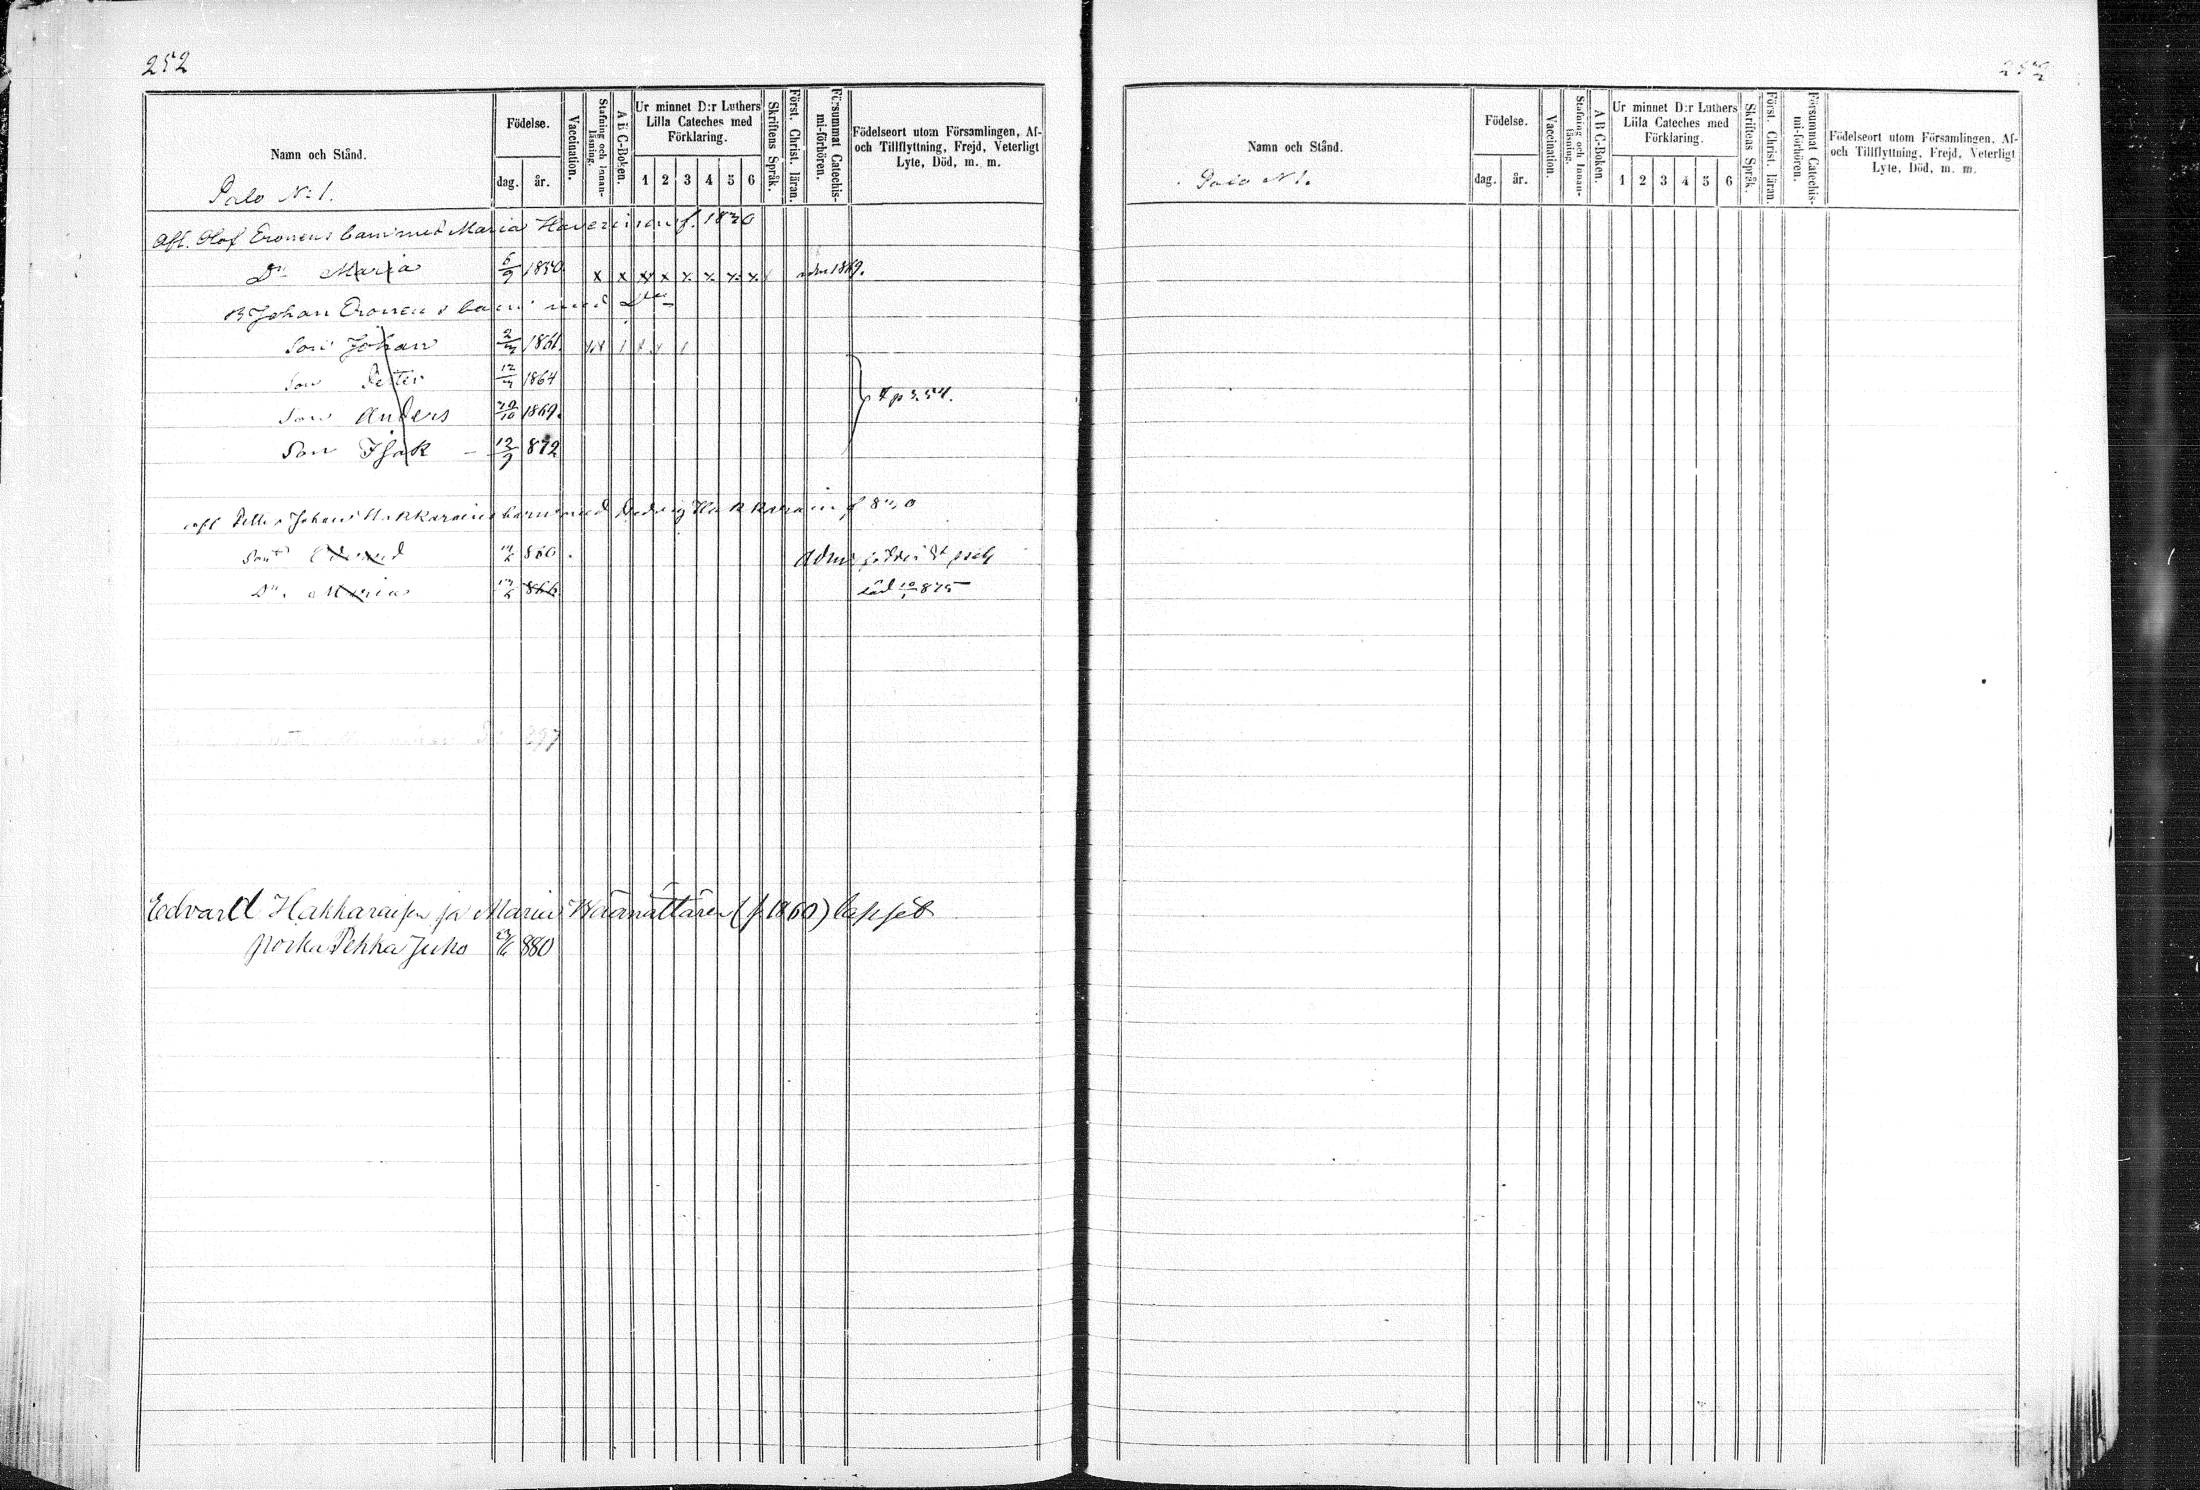 252
Namn och Stånd.
Födelse.
dag. år.
Vaccination.
Stafning och Innan-läsning.
A B C-Boken.
Ur minnet D:r Luthers Lilla Cateches med Förklaring.
1 2 3 4 5 6
Skriftens Språk.
Först. Christ. läran.
Försummat Catechis-mi-förhören.
Födelseort utom Församlingen, Af- och Tillflyttning, Frejd, Veterligt Lyte, Död, m. m.
Palo N:1.
Aft. Olof Eronens barn med Maria f. 1820
Dr Maria 5/9 1850. x x x x x x x x adm 1869.
Johan Eronens barn med
Son Johan 2/7 1861.
Son Petter 12/7 1864
Son Anders 1869.
Son Isak 12/9 872
Petter Johan Hakkarains barn med Hedvig Hakkarain f
Son Edvard 860 Adm
Dr. Maria 866 död 875
397
Edvard Hakkaraisen ja Maria Määnättären (f. 1860) lapset
poika Pekka Juho 880
252
Namn och Stånd.
Födelse.
dag. år.
Vaccination.
Stafning och Innan-läsning.
A B C-Boken.
Ur minnet D:r Luthers Lilla Cateches med Förklaring.
1 2 3 4 5 6
Skriftens Språk.
Först. Christ. läran.
Försummat Catechis-mi-förhören.
Födelseort utom Församlingen, Af- och Tillflyttning, Frejd, Veterligt Lyte, Död, m. m.
Palo N 1.